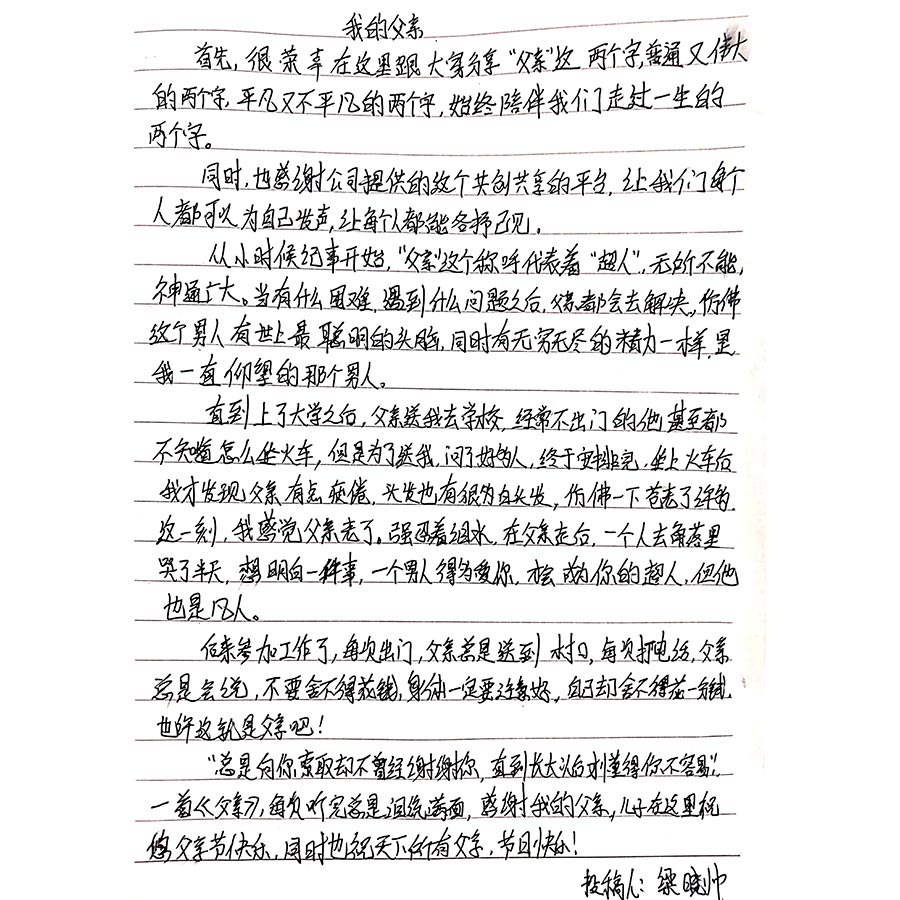 我的父亲
首先,很荣幸在这里跟大家分享“父亲”这两个字,普通又伟大
的两个字,平凡又不平凡的两个字,始终陪伴我们走过一生的
两个字。
同时,也感谢公司提供的这个共创共享的平台,让我们每个
人都可以为自己发声,让每个人都能各抒己见。
从小时候记事开始,“父亲”这个称呼代表着“超人”,无所不能,
神通广大。当有什么困难,遇到什么问题之后,父亲都会去解决。仿佛
这个男人有世上最聪明的头脑,同时有无穷无尽的精力一样,是
我一直仰望的那个男人。
直到上了大学之后,父亲送我去学校,经常不出门的他甚至都
不知道怎么坐火车,但是为了送我,问了好多人,终于安排完,坐上火车后
我才发现父亲有点疲倦,头发也有很多白头发,仿佛一下苍老了许多,
这一刻,我感觉父亲老了。强忍着泪水,在父亲走后,一个人去角落里
哭了半天,想明白一件事,一个男人得多爱你,才会成为你的超人,但他
也是凡人。
后来参加工作了,每次出门,父亲总是送到村口,每次打电话,父亲
总是会说,不要舍不得花钱,身体一定要注意好,自己却舍不得花一分钱,
也许这就是父亲吧!
“总是向你索取却不曾经谢谢你,直到长大以后才懂得你不容易”,
一首《父亲》,每次听完总是泪流满面,感谢我的父亲,儿子在这里祝
您父亲节快乐,同时也祝天下所有父亲,节日快乐!
投稿人:梁晓帅